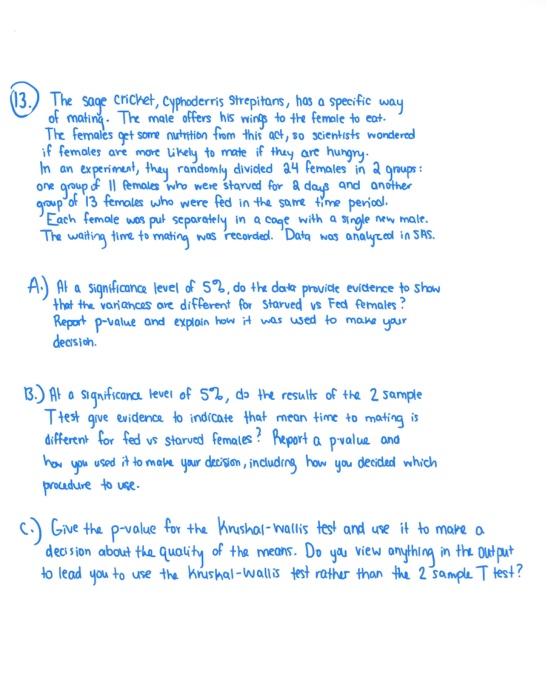 13.) The sage cricket, Cyphoderris Strepitans, has a specific way
of mating. The male offers his wings to the female to eat.
The females get some nutrition from this act, so scientists wondered
if females are more likely to mate if they are hungry.
In an experiment, they randomly divided 24 females in 2 groups:
one group of 11 females who were starved for 2 days and another
group of 13 females who were fed in the same time period.
Each female was put separately in a cage with a single new male.
The waiting time to mating was recorded. Data was analyzed in SAS.
A.) At a significance level of 5%, do the data provide evidence to show
that the variances are different for Starved vs Fed females?
Report p-value and explain how it was used to make your
decision.
B.) At a significance level of 5%, do the results of the 2 sample
T test give evidence to indicate that mean time to mating is
different for fed vs starved females? Report a p-value and
how you used it to make your decision, including how you decided which
procedure to use.
C.) Give the p-value for the Kruskal-Wallis test and use it to make a
decision about the quality of the means. Do you view anything in the output
to lead you to use the Kruskal-Wallis test rather than the 2 sample T test?